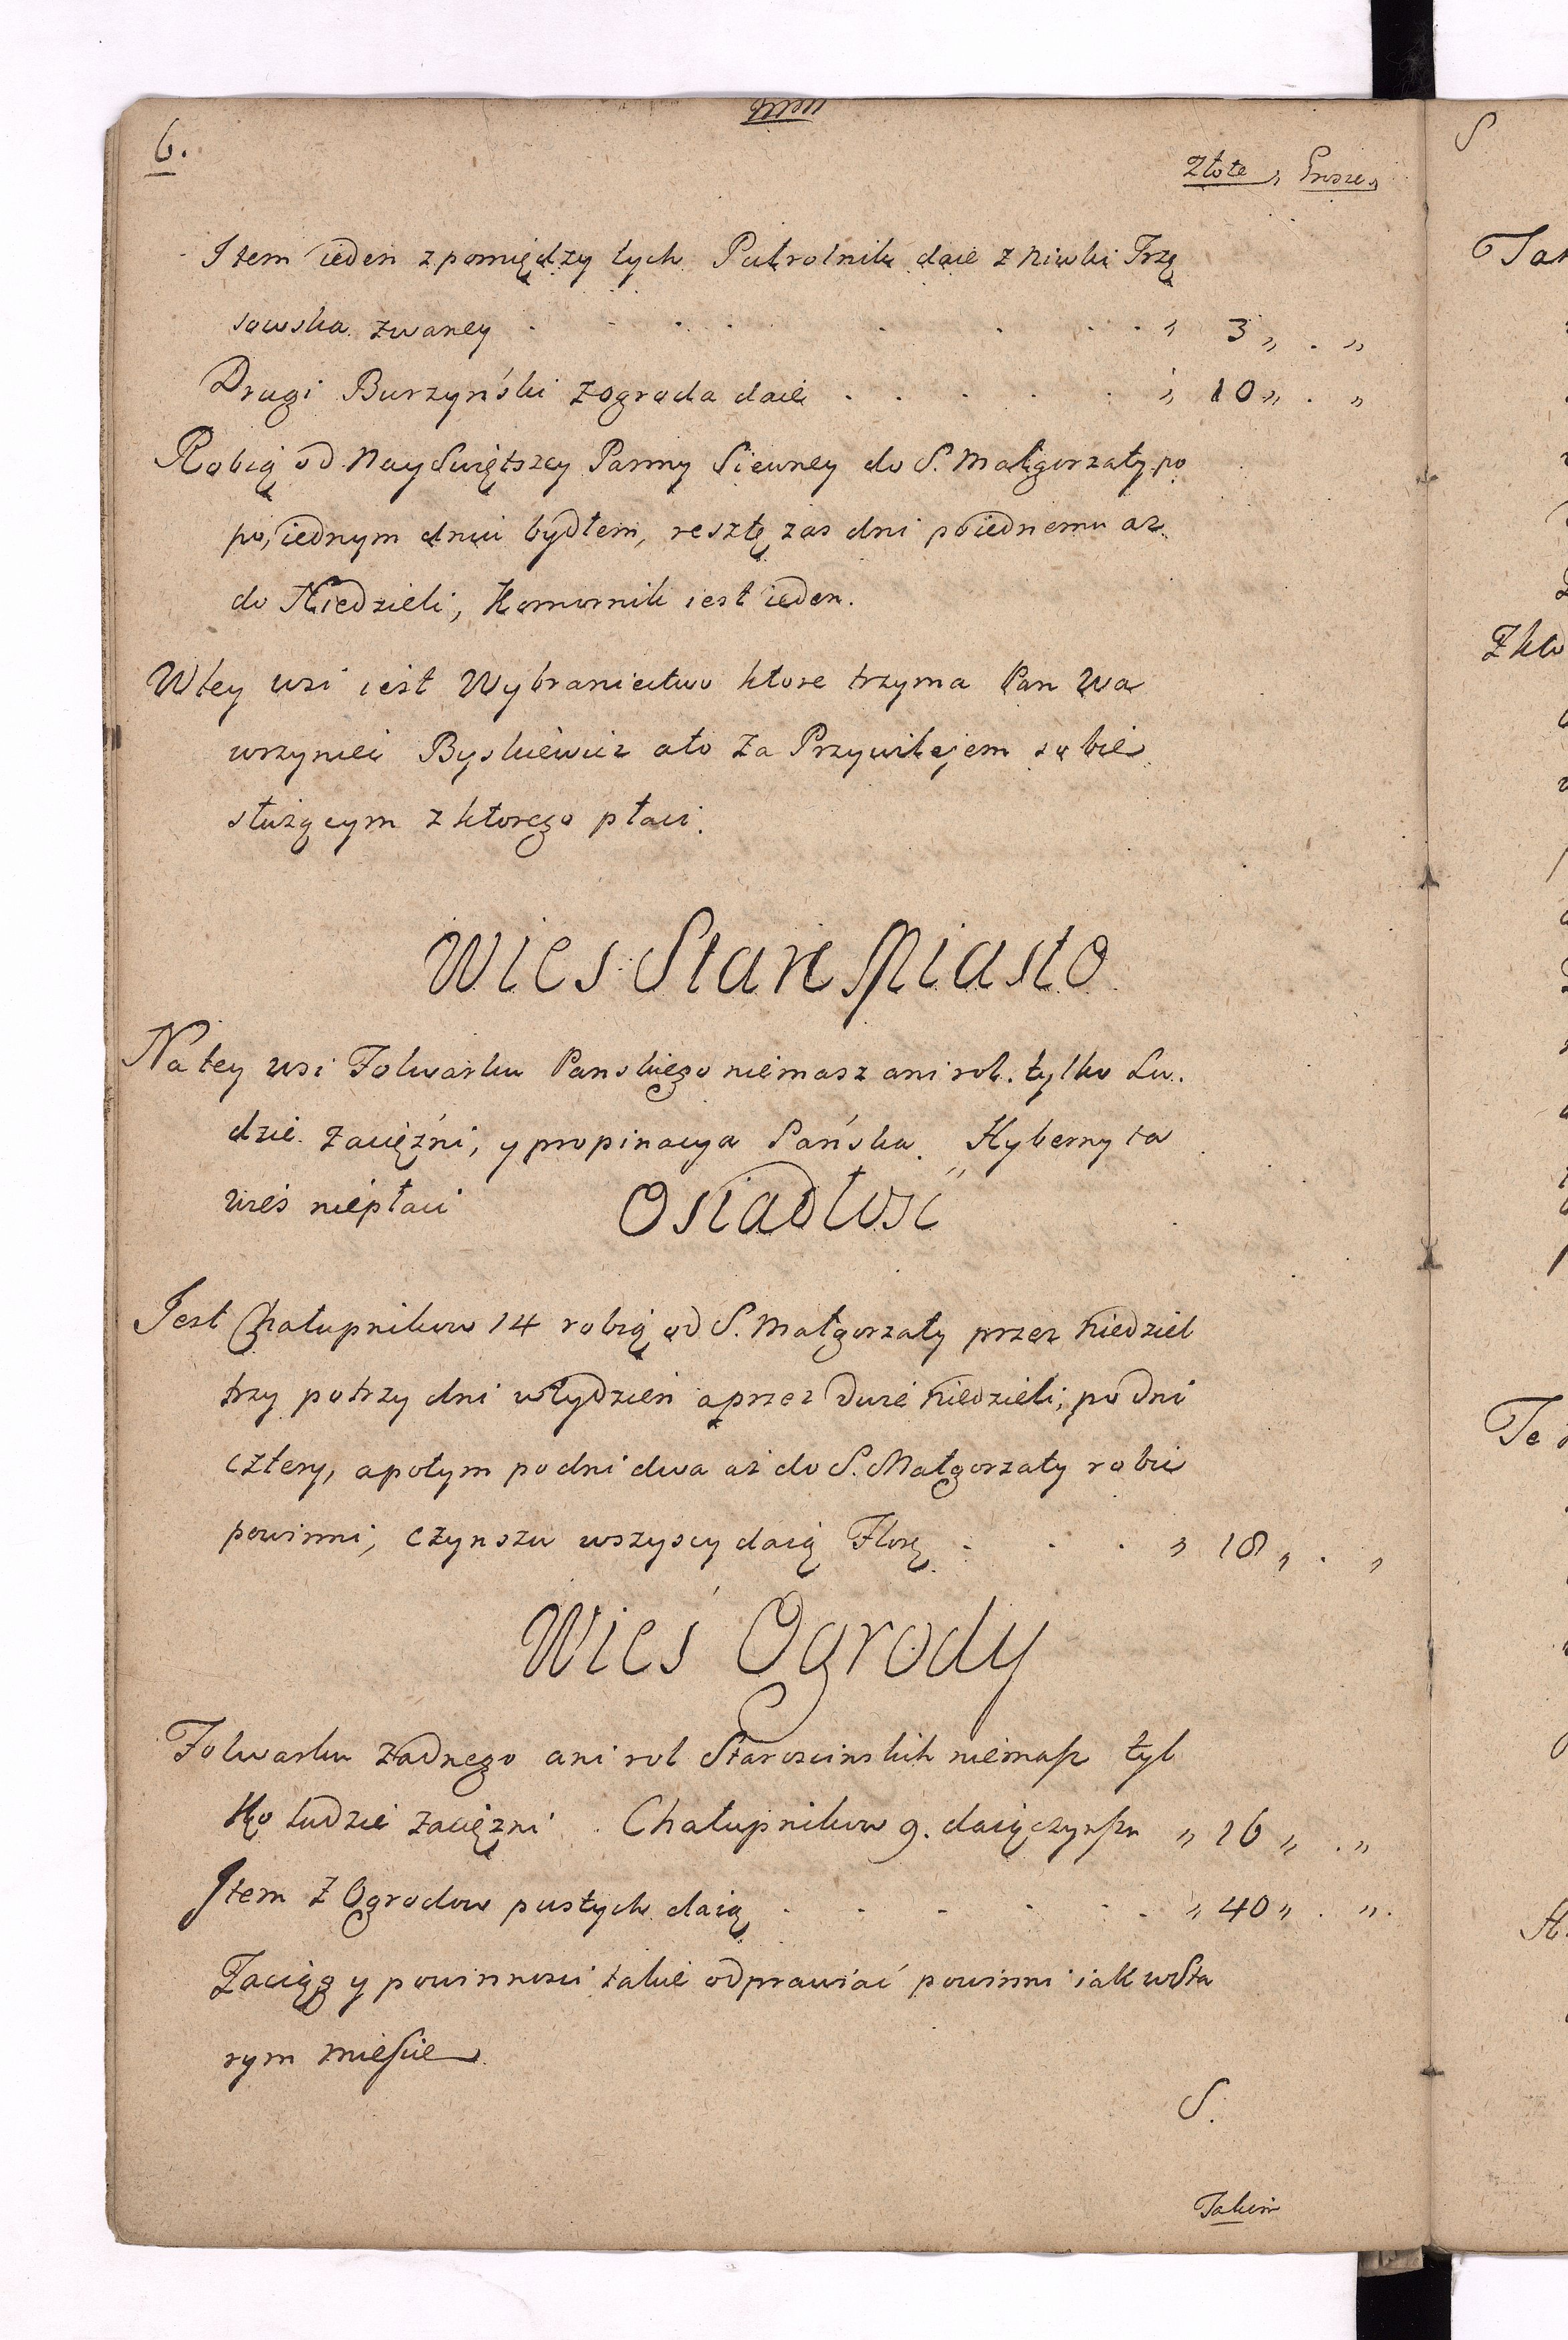 6.
Złote, Grosze,
Item ieden z pomiędzy tych Pułrolnik daie z Niwki Trzę
sowska zwaney . . . . . . . . " 3 " . "
Drugi Burzyński zogroda daie . . . . . " 10 " . "
Robią od Nayświętszey Panny Siewney do S. Małgorzaty po
po, iednym dniu bydłem, resztę zas dni poiednemu az
do Niedzieli, Komornik iest ieden.
Wtey wsi iest Wybraniectwo ktore trzyma Pan Wa
wrzyniec Byskiewicz ato za Przywilejem sobie
służącym z ktorego płaci.
Wies Stare Miasto
Na tey wsi Folwarku Panskiego niemasz ani rol. tylko Lu.
dzie zaciężni, y propinacya Pańska. Hyberny ta
wieś niepłaci
Osiadłość
Jest Chałupnikow 14 robią od S. Małgorzaty przez Niedziel
trzy potrzy dni wtydzień aprzez dwie Niedzieli, po dni
cztery, apotym podni dwa aż do S. Małgorzaty robić
powinni, czynszu wszyscy daią Flor. . . . " 18 " . "
Wieś Ogrody
Folwarku zadnego ani rol Staroscinskich niemasz tyl
ko ludzie zaciężni. Chałupnikow 9. daią czynszu " 16 " . "
Item z Ogrodow pustych daią . . . . . . " 40 " . ".
Zaciąg y powinnosci takie odprawiać powinni iak wSta
rym mieście
S.